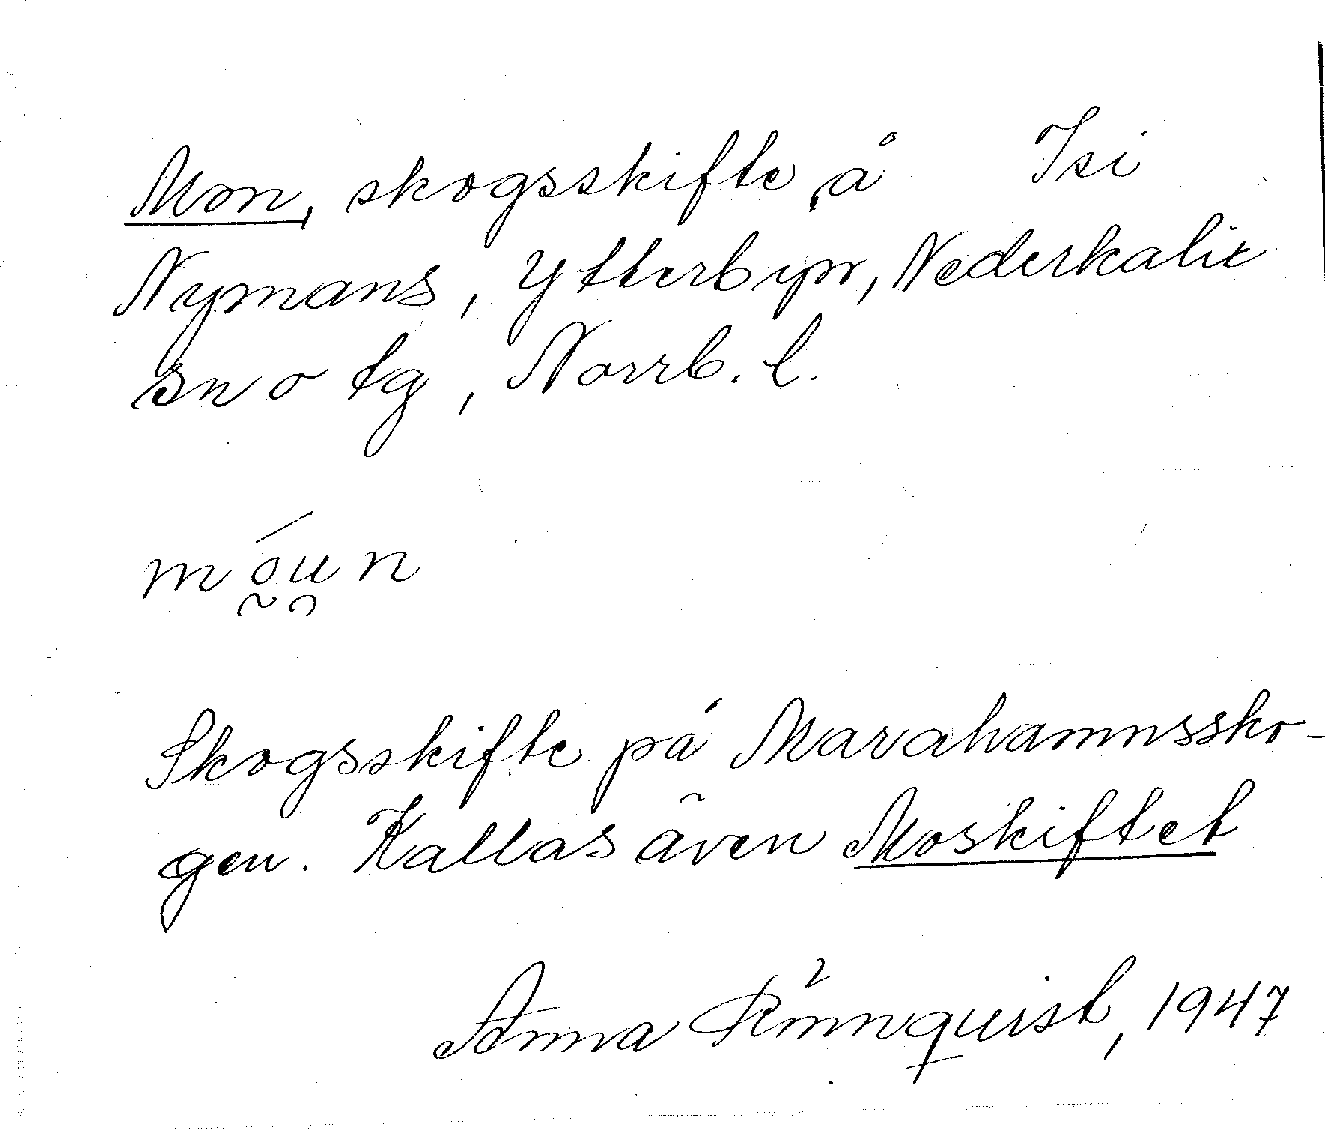 Mon, skogsskifte å Isi
Nymans, Ytterbyn, Nederkalix
sn o tg, Norrb. l.
móun
Skogsskifte på Marahamnssko-
gen. Kallas även Moskiftet
Anna Rönnquist, 1947